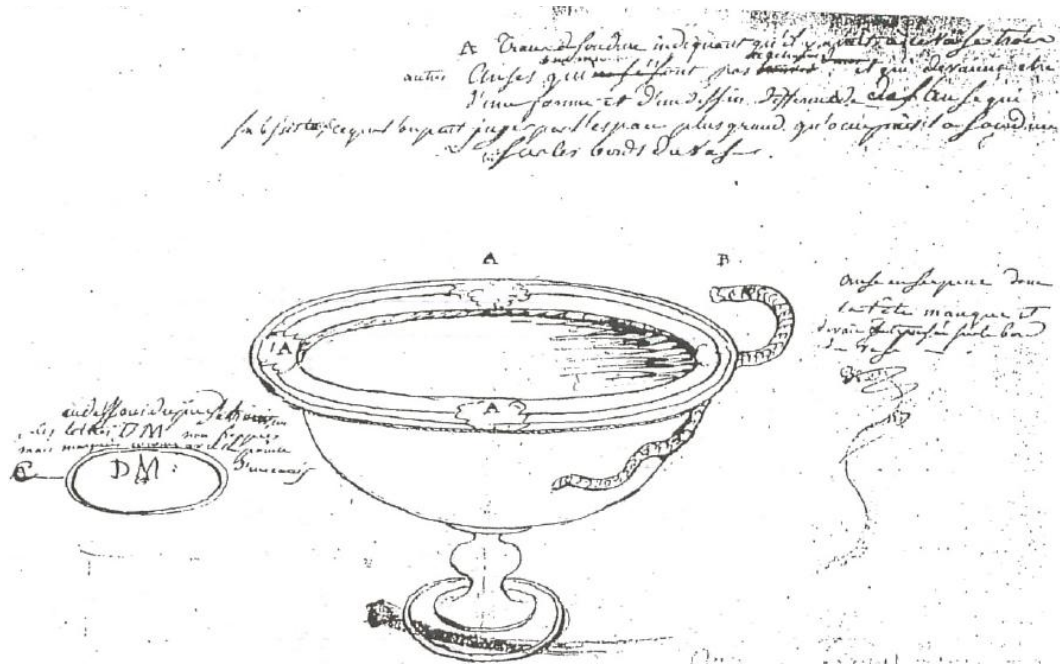 A Trace de soudure indiquant qu'il y avait à ce vase trois
autres Anses qui ne sont pas et qui devaient être
d'une forme et d'un dessin différent de l'Anse qui
subsiste ce que l'on peut juger par l'espace plus grand qu'occupait la soudure
sur les bords du vase.
A
B
anse en serpent dont
la tête manque et
devait sur le bord
du vase
A
A
au dessous du pied se trouve
les lettres DM non frappées
mais marquées comme avec la pointe
d'un canif
C
DM